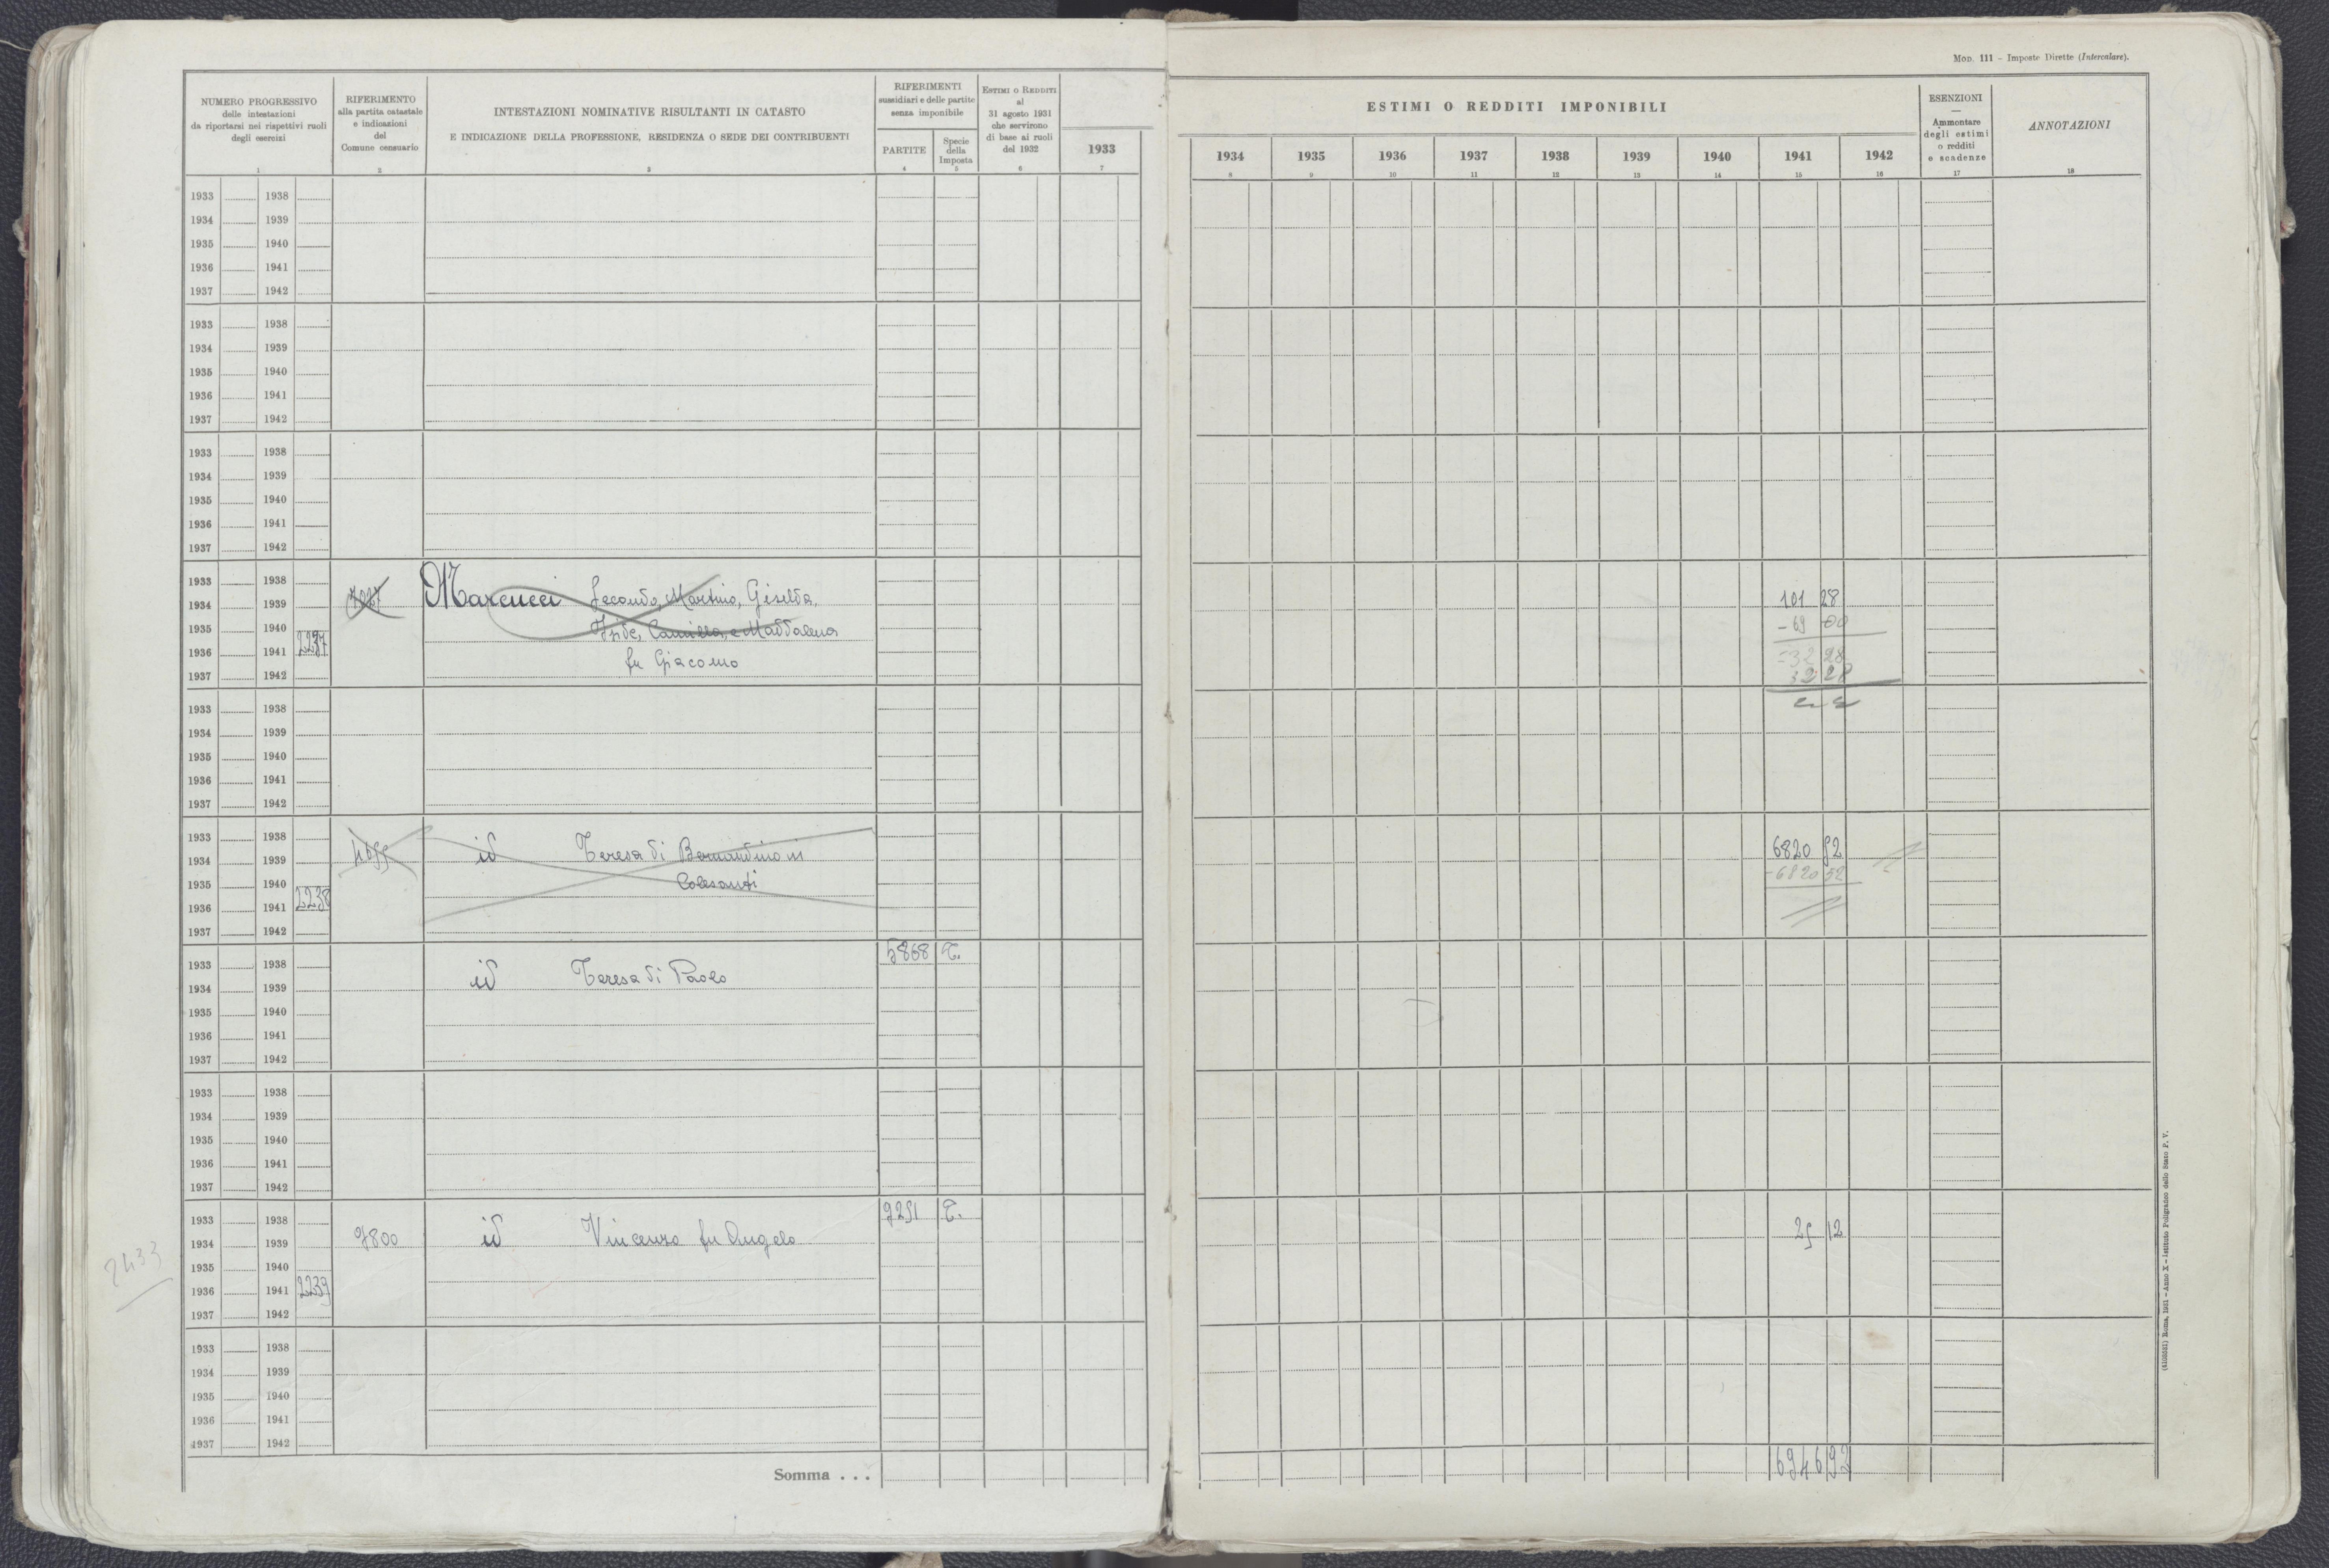 Mod. 111 – Imposte Dirette (Intercalare).
NUMERO PROGRESSIVO
delle intestazioni
da riportarsi nei rispettivi ruoli
degli esercizi
RIFERIMENTO
alla partita catastale
e indicazioni
del
Comune censuario
INTESTAZIONI NOMINATIVE RISULTANTI IN CATASTO
E INDICAZIONE DELLA PROFESSIONE, RESIDENZA O SEDE DEI CONTRIBUENTI
RIFERIMENTI
sussidiari e delle partite
senza imponibile
PARTITE
Specie
della
Imposta
Estimi o Redditi
al
31 agosto 1931
che servirono
di base ai ruoli
del 1932
ESTIMI O REDDITI IMPONIBILI
1933 1934 1935 1936 1937 1938 1939 1940 1941 1942
ESENZIONI
—
Ammontare
degli estimi
o redditi
e scadenze
ANNOTAZIONI
1 2 3 4 5 6 7 8 9 10 11 12 13 14 15 16 17 18
1933 1938
1934 1939
1935 1940
1936 1941
1937 1942
1933 1938
1934 1939
1935 1940
1936 1941
1937 1942
1933 1938
1934 1939
1935 1940
1936 1941
1937 1942
1933 1938
1934 1939 Marcucci Secondo, Martino, Giselda, 101 28
1935 1940 Iside, Camilla, e Maddalena – 69 00
1936 1941 2237 fu Giacomo = 32 28
1937 1942 32 28
1933 1938
1934 1939
1935 1940
1936 1941
1937 1942
1933 1938
1934 1939 id Teresa di Bernardino in 6820 52
1935 1940 Colesanti – 6820 52
1936 1941 2238
1937 1942
5868 T.
1933 1938
1934 1939 id Teresa di Paolo
1935 1940
1936 1941
1937 1942
1933 1938
1934 1939
1935 1940
1936 1941
1937 1942
9251 T.
1933 1938
1934 1939 7800 id Vincenzo fu Angelo 25 12
1935 1940
1936 1941 2239
1937 1942
2433
1933 1938
1934 1939
1935 1940
1936 1941
1937 1942
Somma . . . 6946 92
(4103581) Roma, 1931 – Anno X – Istituto Poligrafico dello Stato P. V.